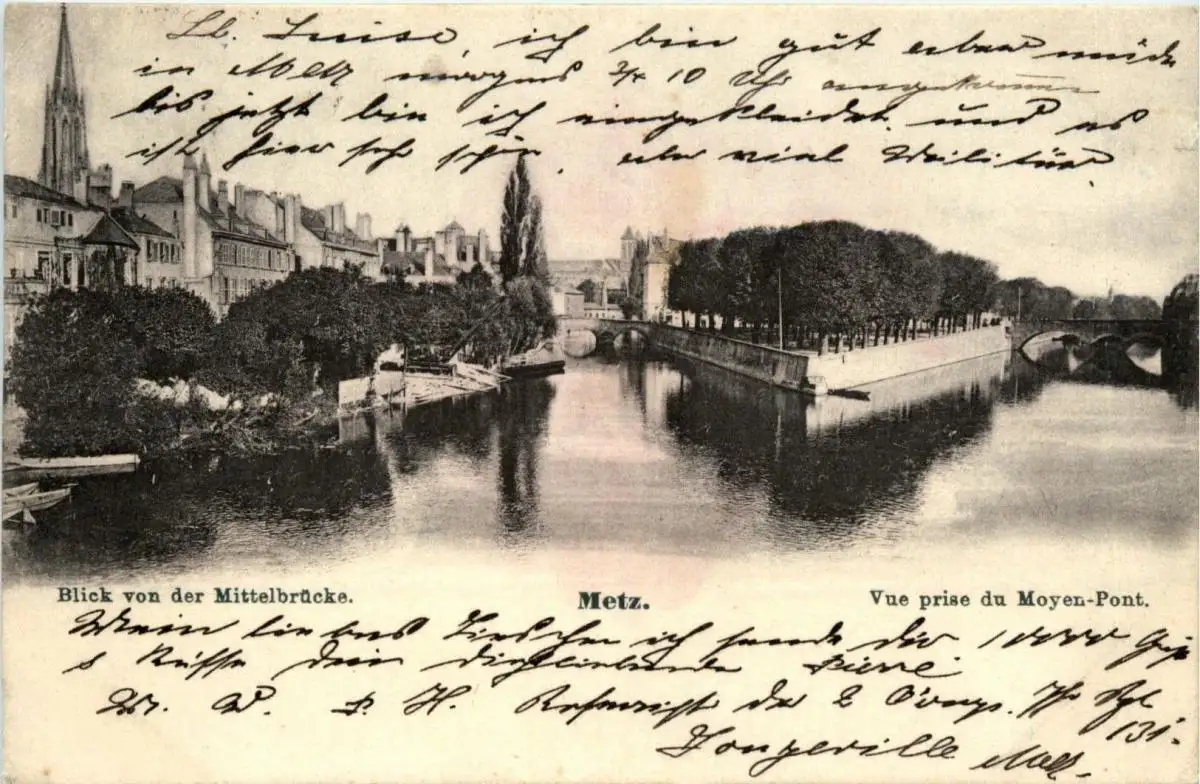 Lb. Luise, ich bin gut aber müde
in Metz morgens 3/4 10 Uhr angekommen
bis jetzt bin ich eingekleidet und es
ist hier sehr schön, aber viel Militär
Blick von der Mittelbrücke.
Metz.
Vue prise du Moyen-Pont.
Mein liebes Lieschen ich sende dir 10000 Grüs
s Küsse dein dichliebende Pierre
M. W. H. der 2 Comp. Rgt
131.
Longeville Metz.